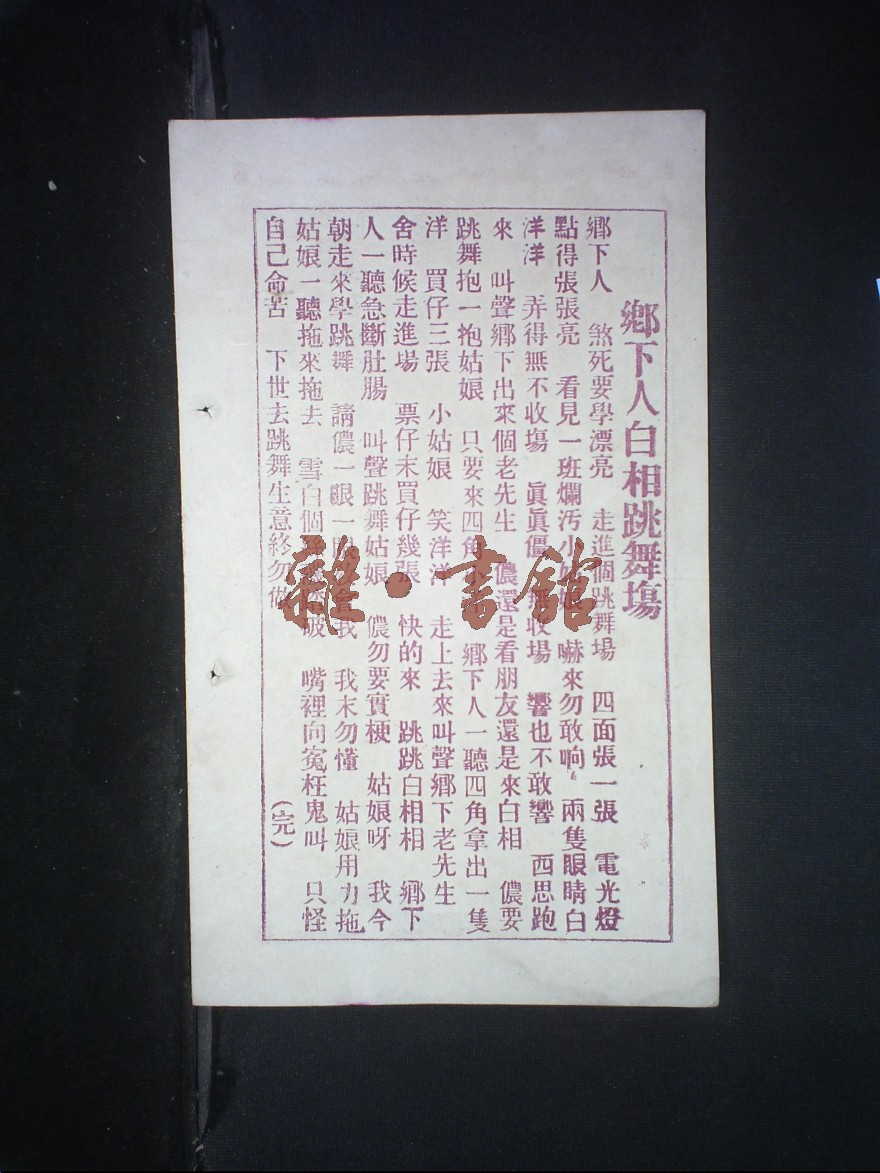 鄉下人白相跳舞塲
鄉下人　煞死要學漂亮　走進個跳舞場　四面張一張　電光燈
點得張張亮　看見一班爛汚小姑娘　嚇來勿敢响　兩隻眼睛白
洋洋　弄得無不收塲　眞眞僵　收場　響也不敢響　西思跑
來　叫聲鄉下出來個老先生　儂還是看朋友還是來白相　儂要
跳舞抱一抱姑娘　只要來四角小　鄉下人一聽四角拿出一隻
洋　買仔三張　小姑娘　笑洋洋　走上去來叫聲鄉下老先生
舍時候走進場　票仔末買仔幾張　快的來　跳跳白相相　鄉下
人一聽急斷肚腸　叫聲跳舞姑娘　儂勿要實梗　姑娘呀　我今
朝走來學跳舞　請儂一眼一眼　會我　我末勿懂　姑娘用力拖
姑娘一聽拖來拖去　雪白個　破　嘴裡向寃枉鬼叫　只怪
自己命苦　下世去跳舞生意終勿做　（完）
雜・書館